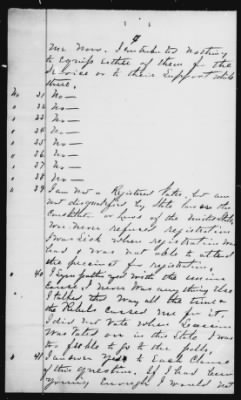 4
me now. I contributed nothing
to equip either of them for the
service or to their support while
there.
No 31 No—
" 32 No—
" 33 No—
" 34 No—
" 35 No—
" 36 No—
" 37 No—
" 38 No—
" 39 I am not a Registered voter, but am
not disqualified by State law or the
Constitution or Laws of the United States
was never refused registration
I was Sick when registration was
had & was not able to attend
the precinct for registering
" 40 I Sympathized with the union
cause, I never was any thing else
I talked this way all the time &
the Rebels cursed me for it.
I did not vote when Secession
was voted on in this State, I was
too feeble to go to the polls,
" 41 I answer yes to Each Clause
of this question. If I had been
young enough I would not